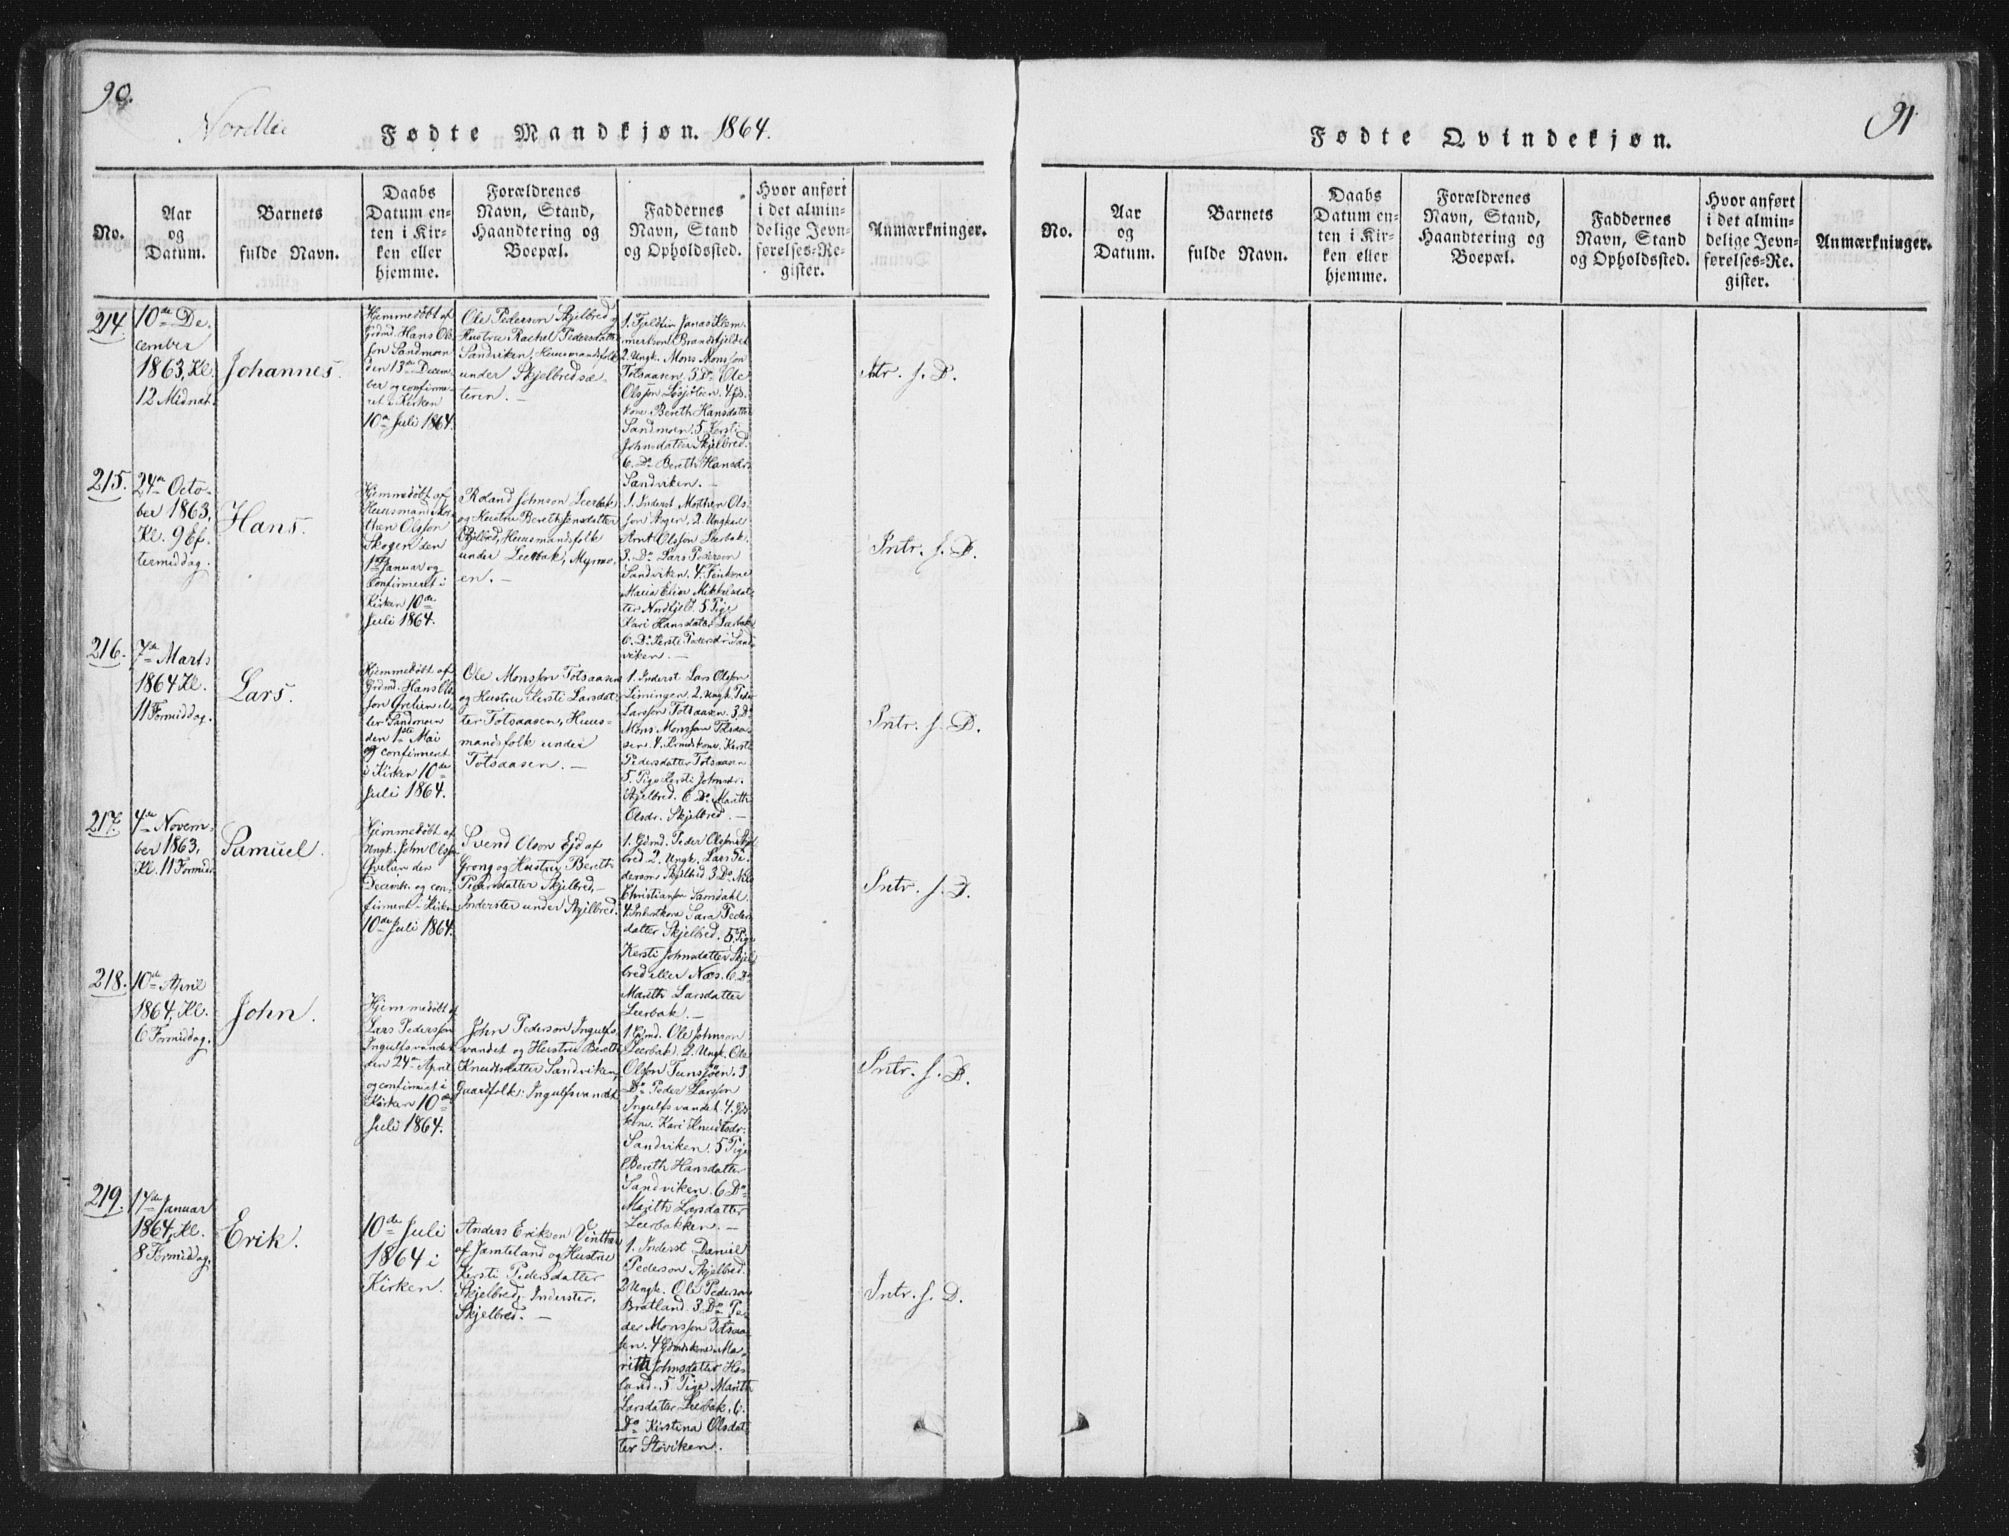 90.
Nordlie
Fødte Mandkjøn. 1864.
No.
Aar
og
Datum.
Barnets
fulde Navn.
Daabs
Datum en-
ten i Kir-
ken eller
hjemme.
Forældrenes
Navn, Stand,
Haandtering og
Boepæl.
Faddernes
Navn, Stand
og Opholdssted.
Hvor anført
i det almin-
delige Jevn-
førelses-Re-
gister.
Anmærkninger.
214
10de De-
cember
1863, Kl.
12 Midnat.
Johannes.
Hjemmedøbt af
Grdmd. Hans Ols-
søn Sandmoen
den 13de Decem-
ber og confirme-
ret i Kirken
10de Juli 1864.
Ole Pederson Skjelbred og
Hustru Rachel Pedersdatter
Sandviken, Huusmandsfolk
under Skjelbredsæ-
teren. —
1. Fjeldfin Jonas Klem-
metson Brandsfjeldet
2. Ungk. Mons Monsson
Totsaasen. 3. Do Ole
Olsson
kone Bereth Hansdatter
Sandmoen. 5. Kersti
Johnsdatter Skjelbred.
6. Do Bereth Hansdr.
Sandviken. —
Intr. f. D.
215.
24de Octo-
ber 1863,
Kl. 9 Ef-
termiddag.
Hans.
Hjemmedøbt af
Huusmand Mor-
then Olsson
Skogen den
1ste Januar og
Confirmeret i
Kirken 10de
Juli 1864.
Roland Johnson Leerbak
og Hustru Bereth Jensdatter
Skjelbred, Huusmandsfolk
under Leerbak, Myrmo-
en. —
1. Inderst Morthen Ols-
son 2. Ungkarl
Arnt Olsson Leerbak.
3. Do Lars Pederson
Sandviken. 4.
Maria Elise Mikkelsdat-
ter Nordfjeld. 5. Pige
Kari Hansdatter Leerbak
6. Do Kersti Pedersdr. Sand-
viken. —
Intr. f. D.
216.
7de Marts
1864 Kl.
11 Formiddag.
Lars.
Hjemmedøbt af
Grdmd. Hans Ols-
son Qvelien el-
ler Sandmoen
den 1ste Mai
og confirmeret
i Kirken 10de
Juli 1864.
Ole Monsson Totsaasen
og Hustru Kersti Larsdat-
ter Totsaasen, Huus-
mandsfolk under
Totsaasen. —
1. Inderst Lars Olsson
Limingen 2. Ungk. Peder
Larsson Totsaasen. 3. Do
Mons Monsson Totsaa-
sen. 4. Kersti
Pedersdatter Totsaasen
5. Pige Kersti Johnsdr.
Skjelbred. 6. Do Marith
Olsdr. Skjelbred. —
Intr. f. D.
217.
4de Novem-
ber 1863,
Kl. 11 Formid.
Samuel.
Hjemmedøbt af
Ungk. John Olsson
Qvelien den
Decembr. og con-
firmeret i Kirken
10de Juli 1864.
Svend Olson Ejd af
Grong og Hustru Bereth
Pedersdatter Skjelbred, —
Inderster under Skjelbred.
1. Grdmd. Peder Olsson Skjel-
bred 2. Ungk. Lars Pe-
derson Skjelbred 3. Do Nils
Christianson
4. Inderstkone Sara Peders-
datter Skjelbred. 5 Pige
Kersti Johnsdatter Skjel-
bred eller Næs. 6. Do
Marith Larsdatter
Leerbak. —
Intr. f. D.
218.
10de April
1864, Kl.
6 Formiddag.
John.
Hjemmedøbt af
Lars Pedersson
Ingulfsvandet
den 24de April
og confirmeret i
Kirken 10de
Juli 1864.
John Pederson Ingulfs-
vandet og Hustru Bereth
Knudtsdatter Sandviken,
Gaardfolk: Ingulfsvandet
1. Grdmd. Ole Johnson
Leerbak. 2. Ungk. Ole
Olsson Tunssöen. 3
Do Peder Larsson
Ingulfsvandet. 4. Grd-
kone. Kari Knudtsdr.
Sandviken. 5 Pige
Bereth Hansdatter
Sandviken. 6 Do
Marith Larsdatter
Leerbakken. —
Intr. f. D.
219.
17de Januar
1864, Kl.
8 Formiddag.
Erik.
10de Juli
1864 i
Kirken.
Anders Erikson
af Jemteland og Hustrue
Kersti Pedersdatter
Skjelbred, Inderster,
Skjelbred. —
1. Inderst Daniel
Pederson Skjelbred.
2 Ungk. Ole Pederson
Bratland. 3 Do Pe-
der Monsson Totsaa-
sen. 4 Grdmdskone Ma-
rith Johnsdatter Hav-
land. 5 Pige Marith
Larsdatter Leerbak. 6.
Do Kirstina Olsdat-
ter Støviken.
Intr. f. D.
91.
Fødte Qvindekjøn.
No.
Aar
og
Datum.
Barnets
fulde Navn.
Daabs
Datum en-
ten i Kir-
ken eller
hjemme.
Forældrenes
Navn, Stand,
Haandtering og
Boepæl.
Faddernes
Navn, Stand
og Opholdssted.
Hvor anført
i det almin-
delige Jevn-
førelses-Re.
gister.
Anmærkninger.